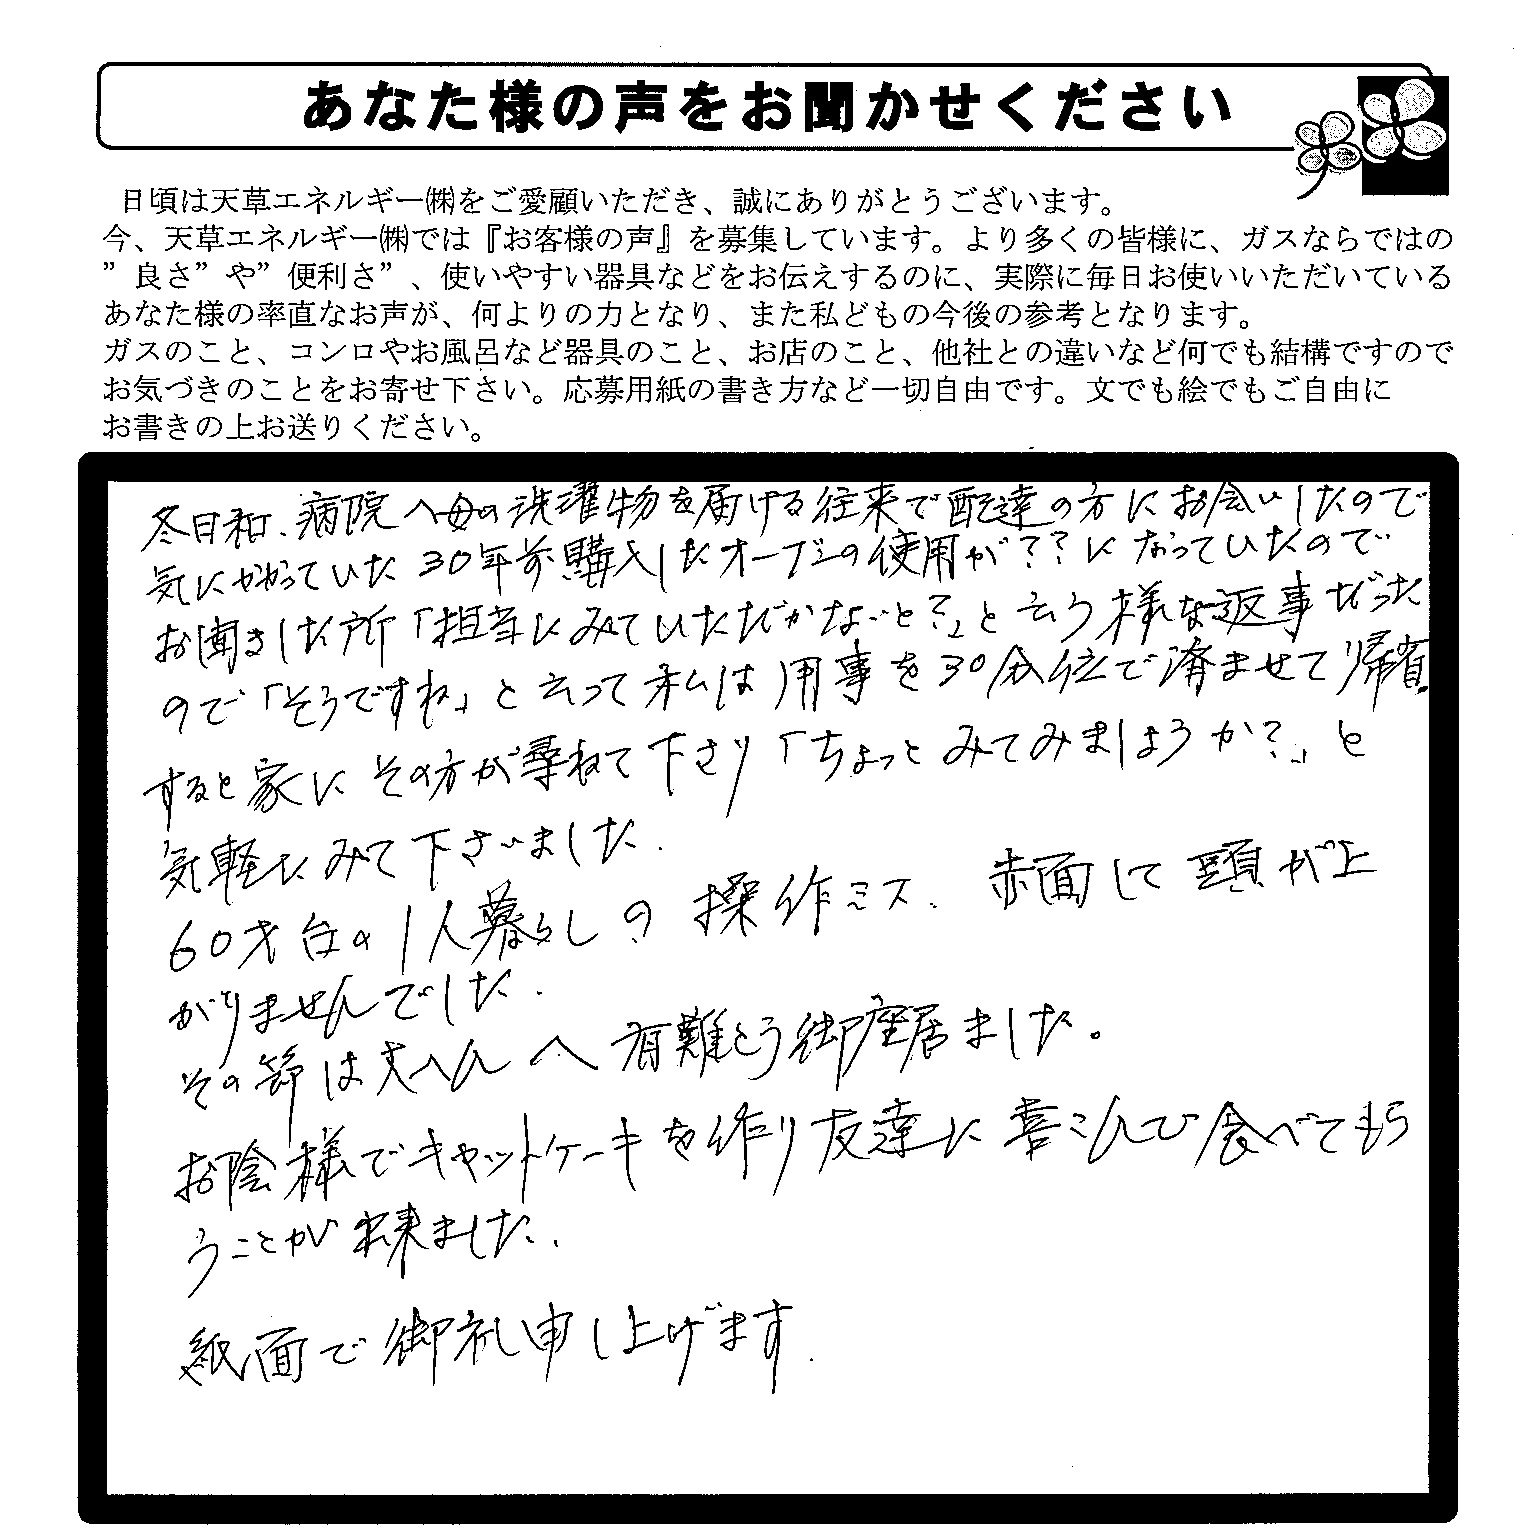 あなた様の声をお聞かせください
日頃は天草エネルギー㈱をご愛顧いただき、誠にありがとうございます。
今、天草エネルギー㈱では『お客様の声』を募集しています。より多くの皆様に、ガスならではの
”良さ”や”便利さ”、使いやすい器具などをお伝えするのに、実際に毎日お使いいただいている
あなた様の率直なお声が、何よりの力となり、また私どもの今後の参考となります。
ガスのこと、コンロやお風呂など器具のこと、お店のこと、他社との違いなど何でも結構ですので
お気づきのことをお寄せ下さい。応募用紙の書き方など一切自由です。文でも絵でもご自由に
お書きの上お送りください。
冬日和、病院へ母の洗濯物を届ける往来で配達の方にお会いしたので
気にかかっていた30年前購入したオーブンの使用が??になっていたので
お聞きした所「担当にみていただかないと?」と云う様な返事だった
ので「そうですね」と云って私は用事を30分位で済ませて帰省
すると家にその方が尋ねて下さり「ちょっとみてみましょうか?」と
気軽にみて下さいました.
60才台の1人暮らしの操作ミス.赤面して頭が上
がりませんでした.
その節は大へんへ有難とう御座居ました。
お陰様でキャットケーキを作り友達に喜こんで食べてもら
うことが出来ました.
紙面で御礼申し上げます.